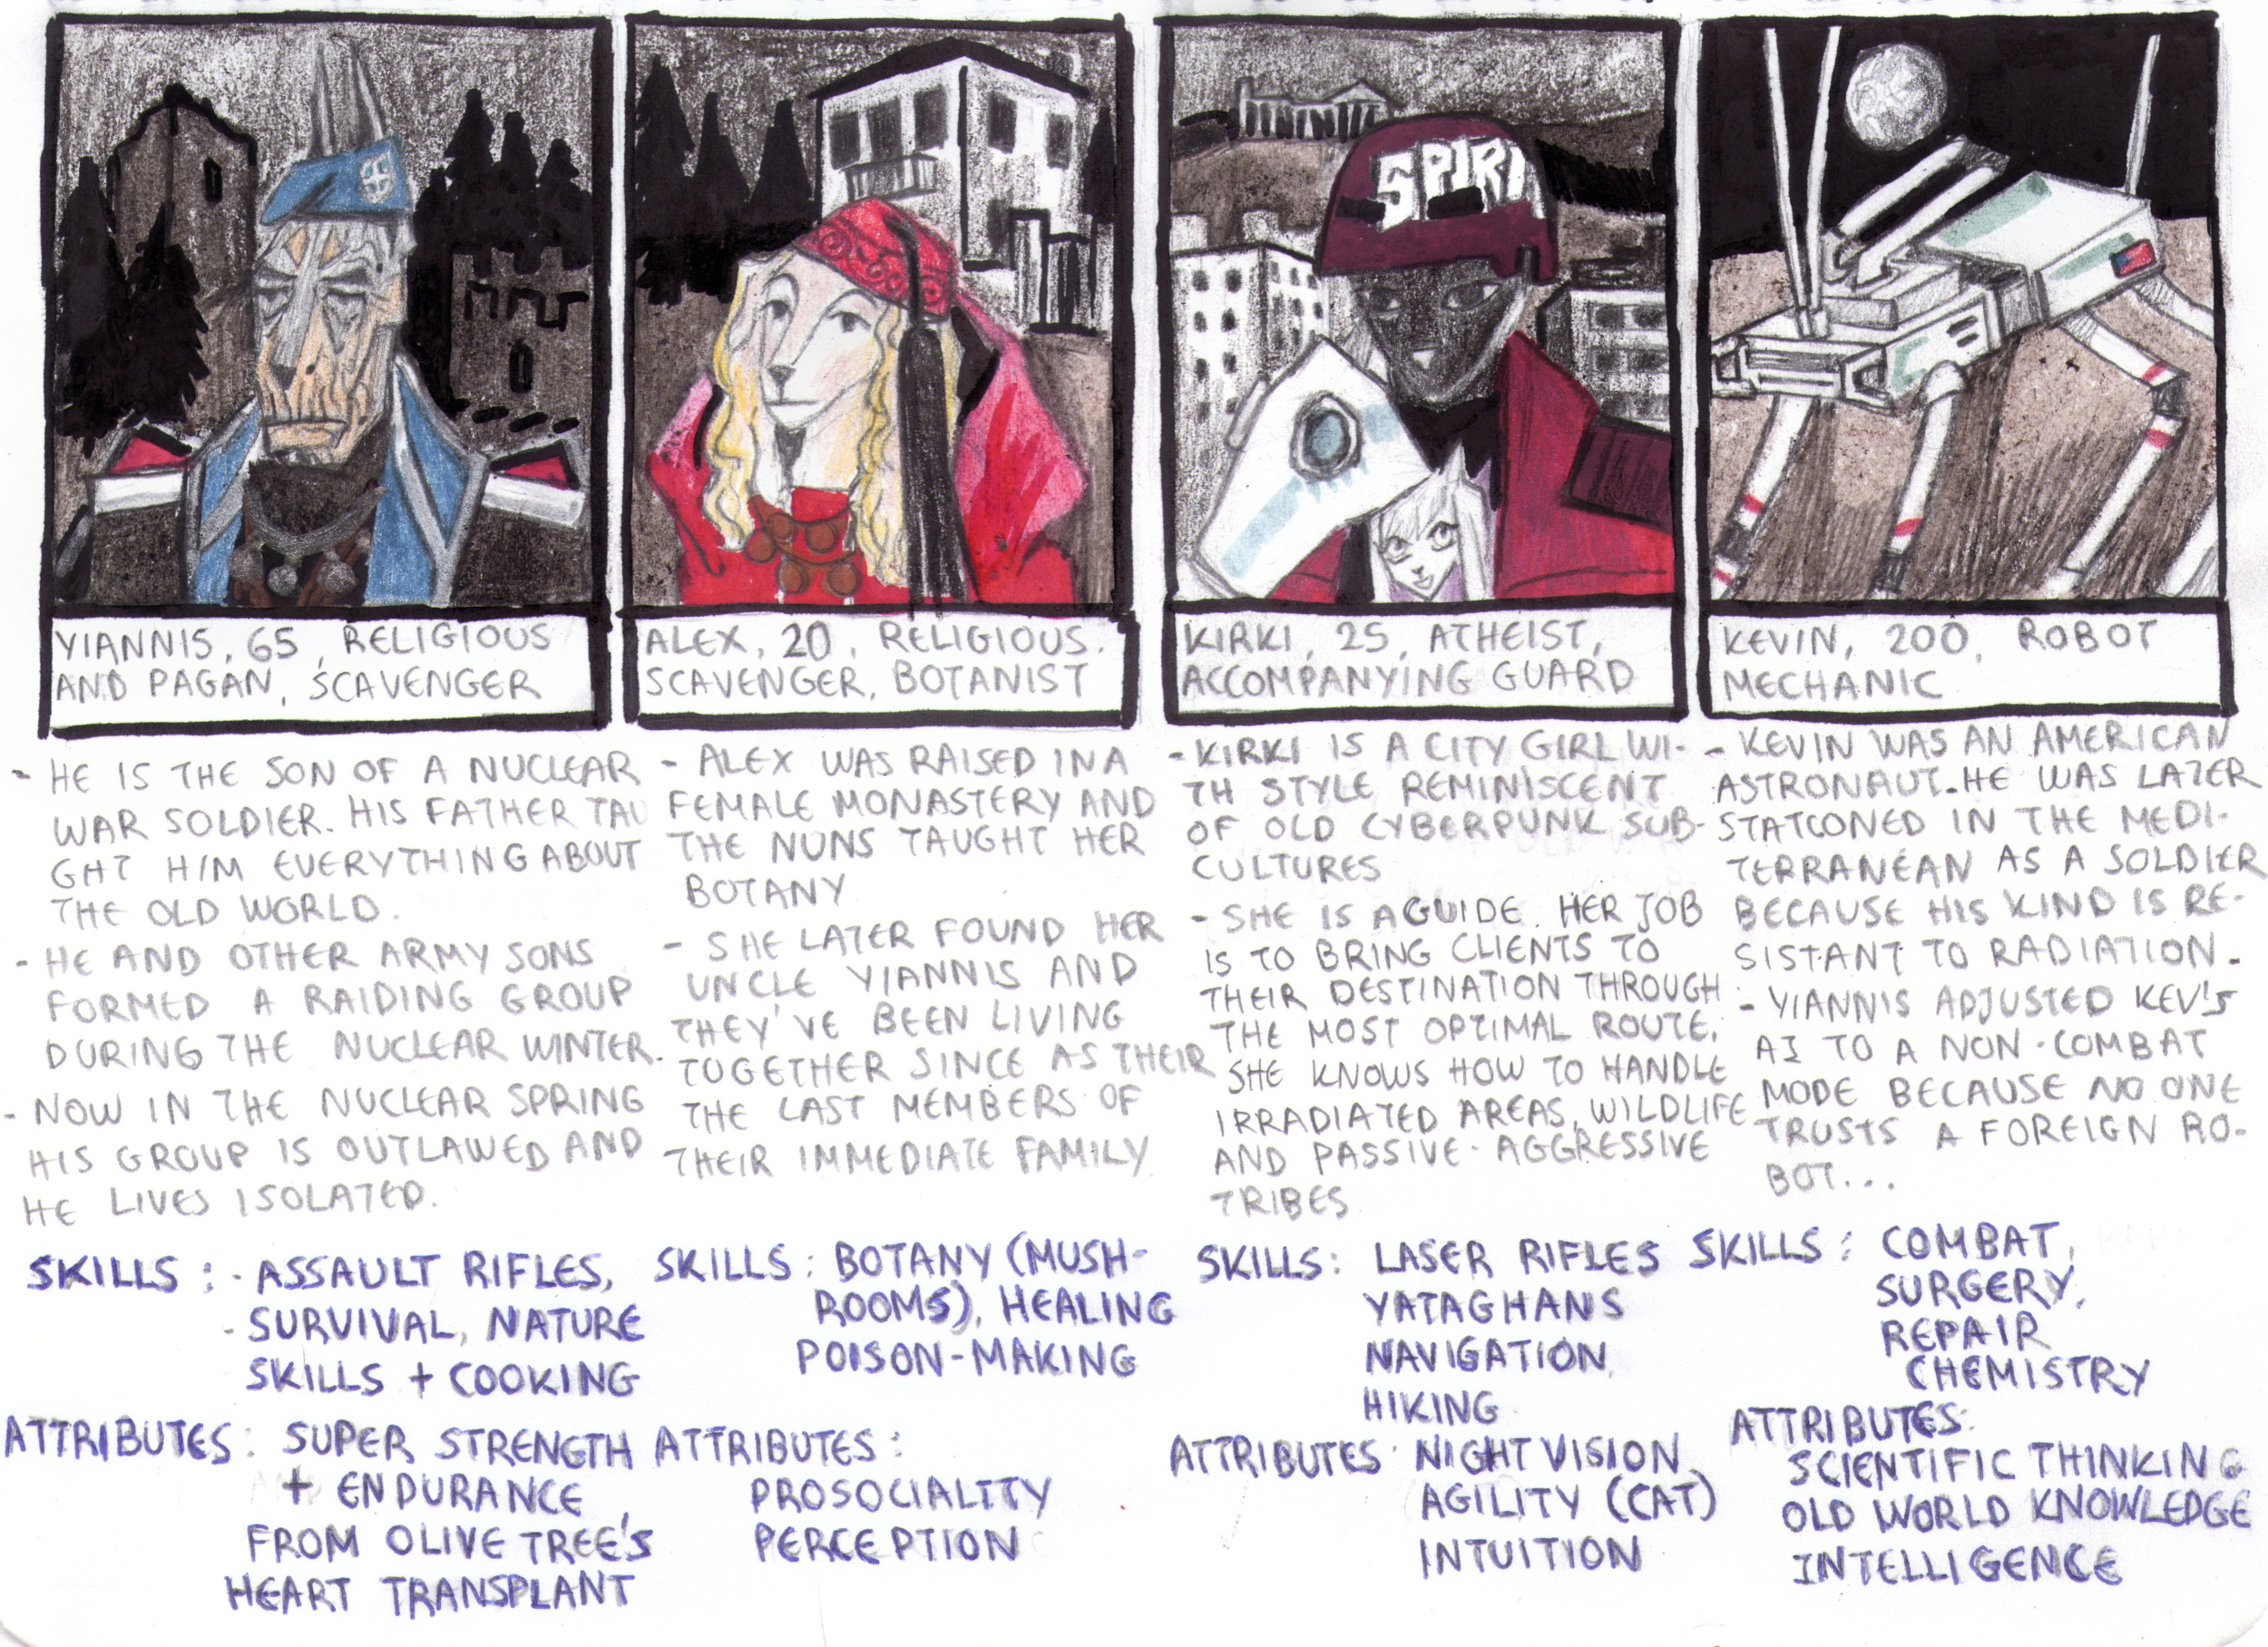 YIANNIS, 65, RELIGIOUS
AND PAGAN, SCAVENGER
- HE IS THE SON OF A NUCLEAR
WAR SOLDIER. HIS FATHER TAU
GHT HIM EVERYTHING ABOUT
THE OLD WORLD.
- HE AND OTHER ARMY SONS
FORMED A RAIDING GROUP
DURING THE NUCLEAR WINTER.
- NOW IN THE NUCLEAR SPRING
HIS GROUP IS OUTLAWED AND
HE LIVES ISOLATED.
SKILLS : - ASSAULT RIFLES,
- SURVIVAL, NATURE
SKILLS + COOKING
ATTRIBUTES: SUPER STRENGTH
+ ENDURANCE
FROM OLIVE TREE'S
HEART TRANSPLANT
ALEX, 20, RELIGIOUS.
SCAVENGER, BOTANIST
- ALEX WAS RAISED IN A
FEMALE MONASTERY AND
THE NUNS TAUGHT HER
BOTANY
- SHE LATER FOUND HER
UNCLE YIANNIS AND
THEY'VE BEEN LIVING
TOGETHER SINCE AS THEIR
THE LAST MEMBERS OF
THEIR IMMEDIATE FAMILY
SKILLS: BOTANY (MUSH-
ROOMS), HEALING
POISON-MAKING
ATTRIBUTES:
PROSOCIALITY
PERCEPTION
SPIRI
KIRKI, 25, ATHEIST,
ACCOMPANYING GUARD
- KIRKI IS A CITY GIRL WI-
TH STYLE REMINISCENT
OF OLD CYBERPUNK SUB-
CULTURES
- SHE IS A GUIDE. HER JOB
IS TO BRING CLIENTS TO
THEIR DESTINATION THROUGH
THE MOST OPTIMAL ROUTE.
SHE KNOWS HOW TO HANDLE
IRRADIATED AREAS, WILDLIFE
AND PASSIVE-AGGRESSIVE
TRIBES
SKILLS: LASER RIFLES
YATAGHANS
NAVIGATION,
HIKING
ATTRIBUTES: NIGHT VISION,
AGILITY (CAT)
INTUITION
KEVIN, 200, ROBOT
MECHANIC
- KEVIN WAS AN AMERICAN
ASTRONAUT. HE WAS LATER
STATCONED IN THE MEDI-
TERRANEAN AS A SOLDIER
BECAUSE HIS KIND IS RE-
SISTANT TO RADIATION.
- YIANNIS ADJUSTED KEV'S
AI TO A NON-COMBAT
MODE BECAUSE NO ONE
TRUSTS A FOREIGN RO-
BOT...
SKILLS: COMBAT,
SURGERY,
REPAIR
CHEMISTRY
ATTRIBUTES:
SCIENTIFIC THINKING
OLD WORLD KNOWLEDGE
INTELLIGENCE